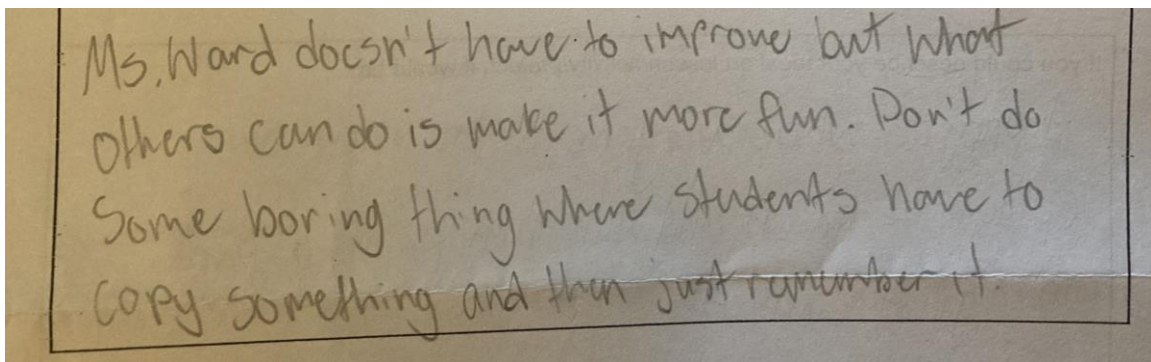 Ms. Ward doesn't have to improve but what
others can do is make it more fun. Don't do
Some boring thing where students have to
copy something and then just remember it.